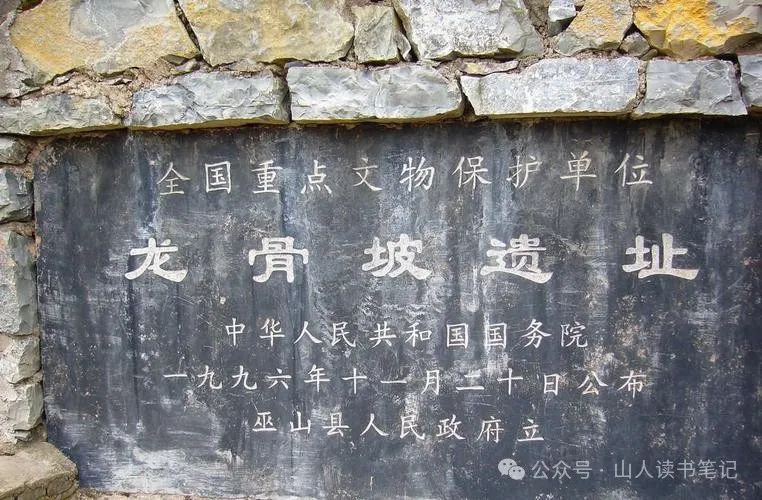 全国重点文物保护单位
龙骨坡遗址
中华人民共和国国务院
一九九六年十一月二十日公布
巫山县人民政府立
公众号·山人读书笔记